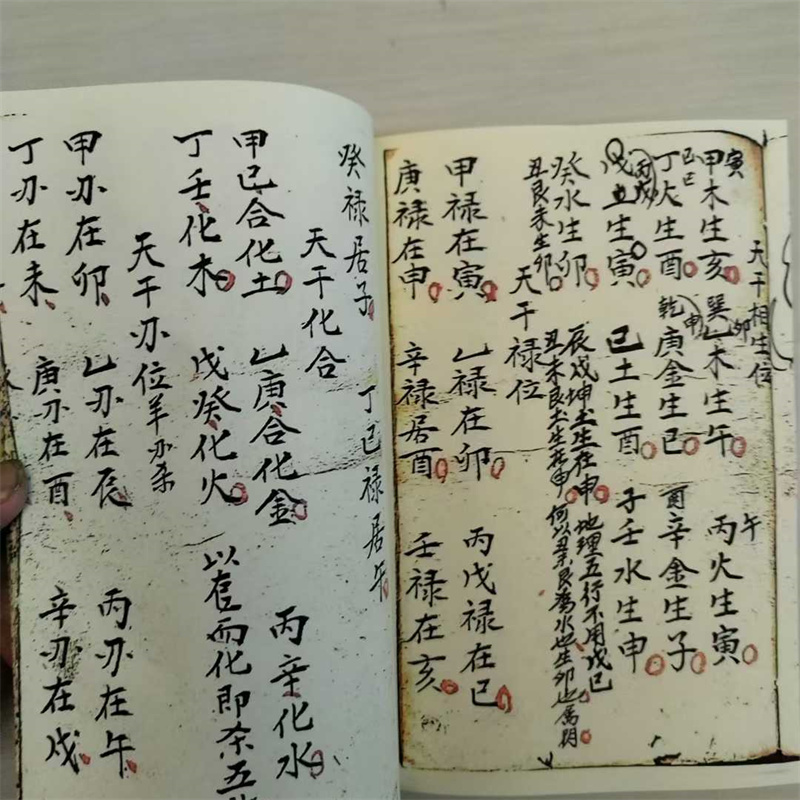 天干相生位
甲木生亥 乙木生午 丙火生寅
寅 巽 卯 午
丁火生酉 庚金生巳 辛金生子
己巳 乾 申 酉
戊土生寅 己土生酉 壬水生申
丙戌 子
癸水生卯 辰戌坤土生在申 地理五行不用戊己
丑艮未生卯 丑未艮土生在申 何以丑未艮為水也生卯也属阴
天干禄位
甲禄在寅 乙禄在卯 丙戊禄在巳
庚禄在申 辛禄居酉 壬禄在亥
癸禄居子 丁己禄居午
天干化合
甲己合化土 乙庚合化金 丙辛化水
丁壬化木 戊癸化火 以在而化即杀五
天干刃位羊刃杀
甲刃在卯 乙刃在辰 丙刃在午
丁刃在未 庚刃在酉 辛刃在戌